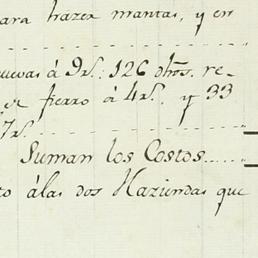 para hazer mantas, y en
nuevas á 9 rs. 126 dhos. re-
de fierro á 4 rs. y 33
7 rs.
Suman los Costos
to álas dos Haziendas que